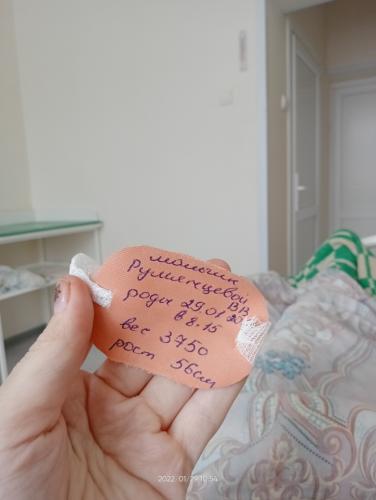 мальчик
Румянцевой ВВ
роды 29.01.20
в 8.15
вес 3750
рост 56см
2022/01/29 10:54